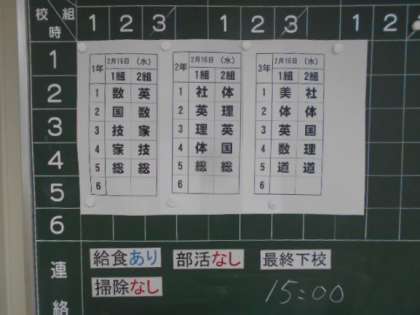 校 組 1 2 3 1 2 3 1 2
時
1年 2月15日 (水)
1組 2組
1 数 英
2 国 数
3 技 家
4 家 技
5 総 総
6
2年 2月15日 (水)
1組 2組
1 社 体
2 英 理
3 理 英
4 体 国
5 総 総
6
3年 2月15日 (水)
1組 2組
1 美 社
2 体 体
3 英 国
4 数 理
5 道 道
6
1
2
3
4
5
6 1 2
連絡
給食あり 部活なし 最終下校
掃除なし 15:00